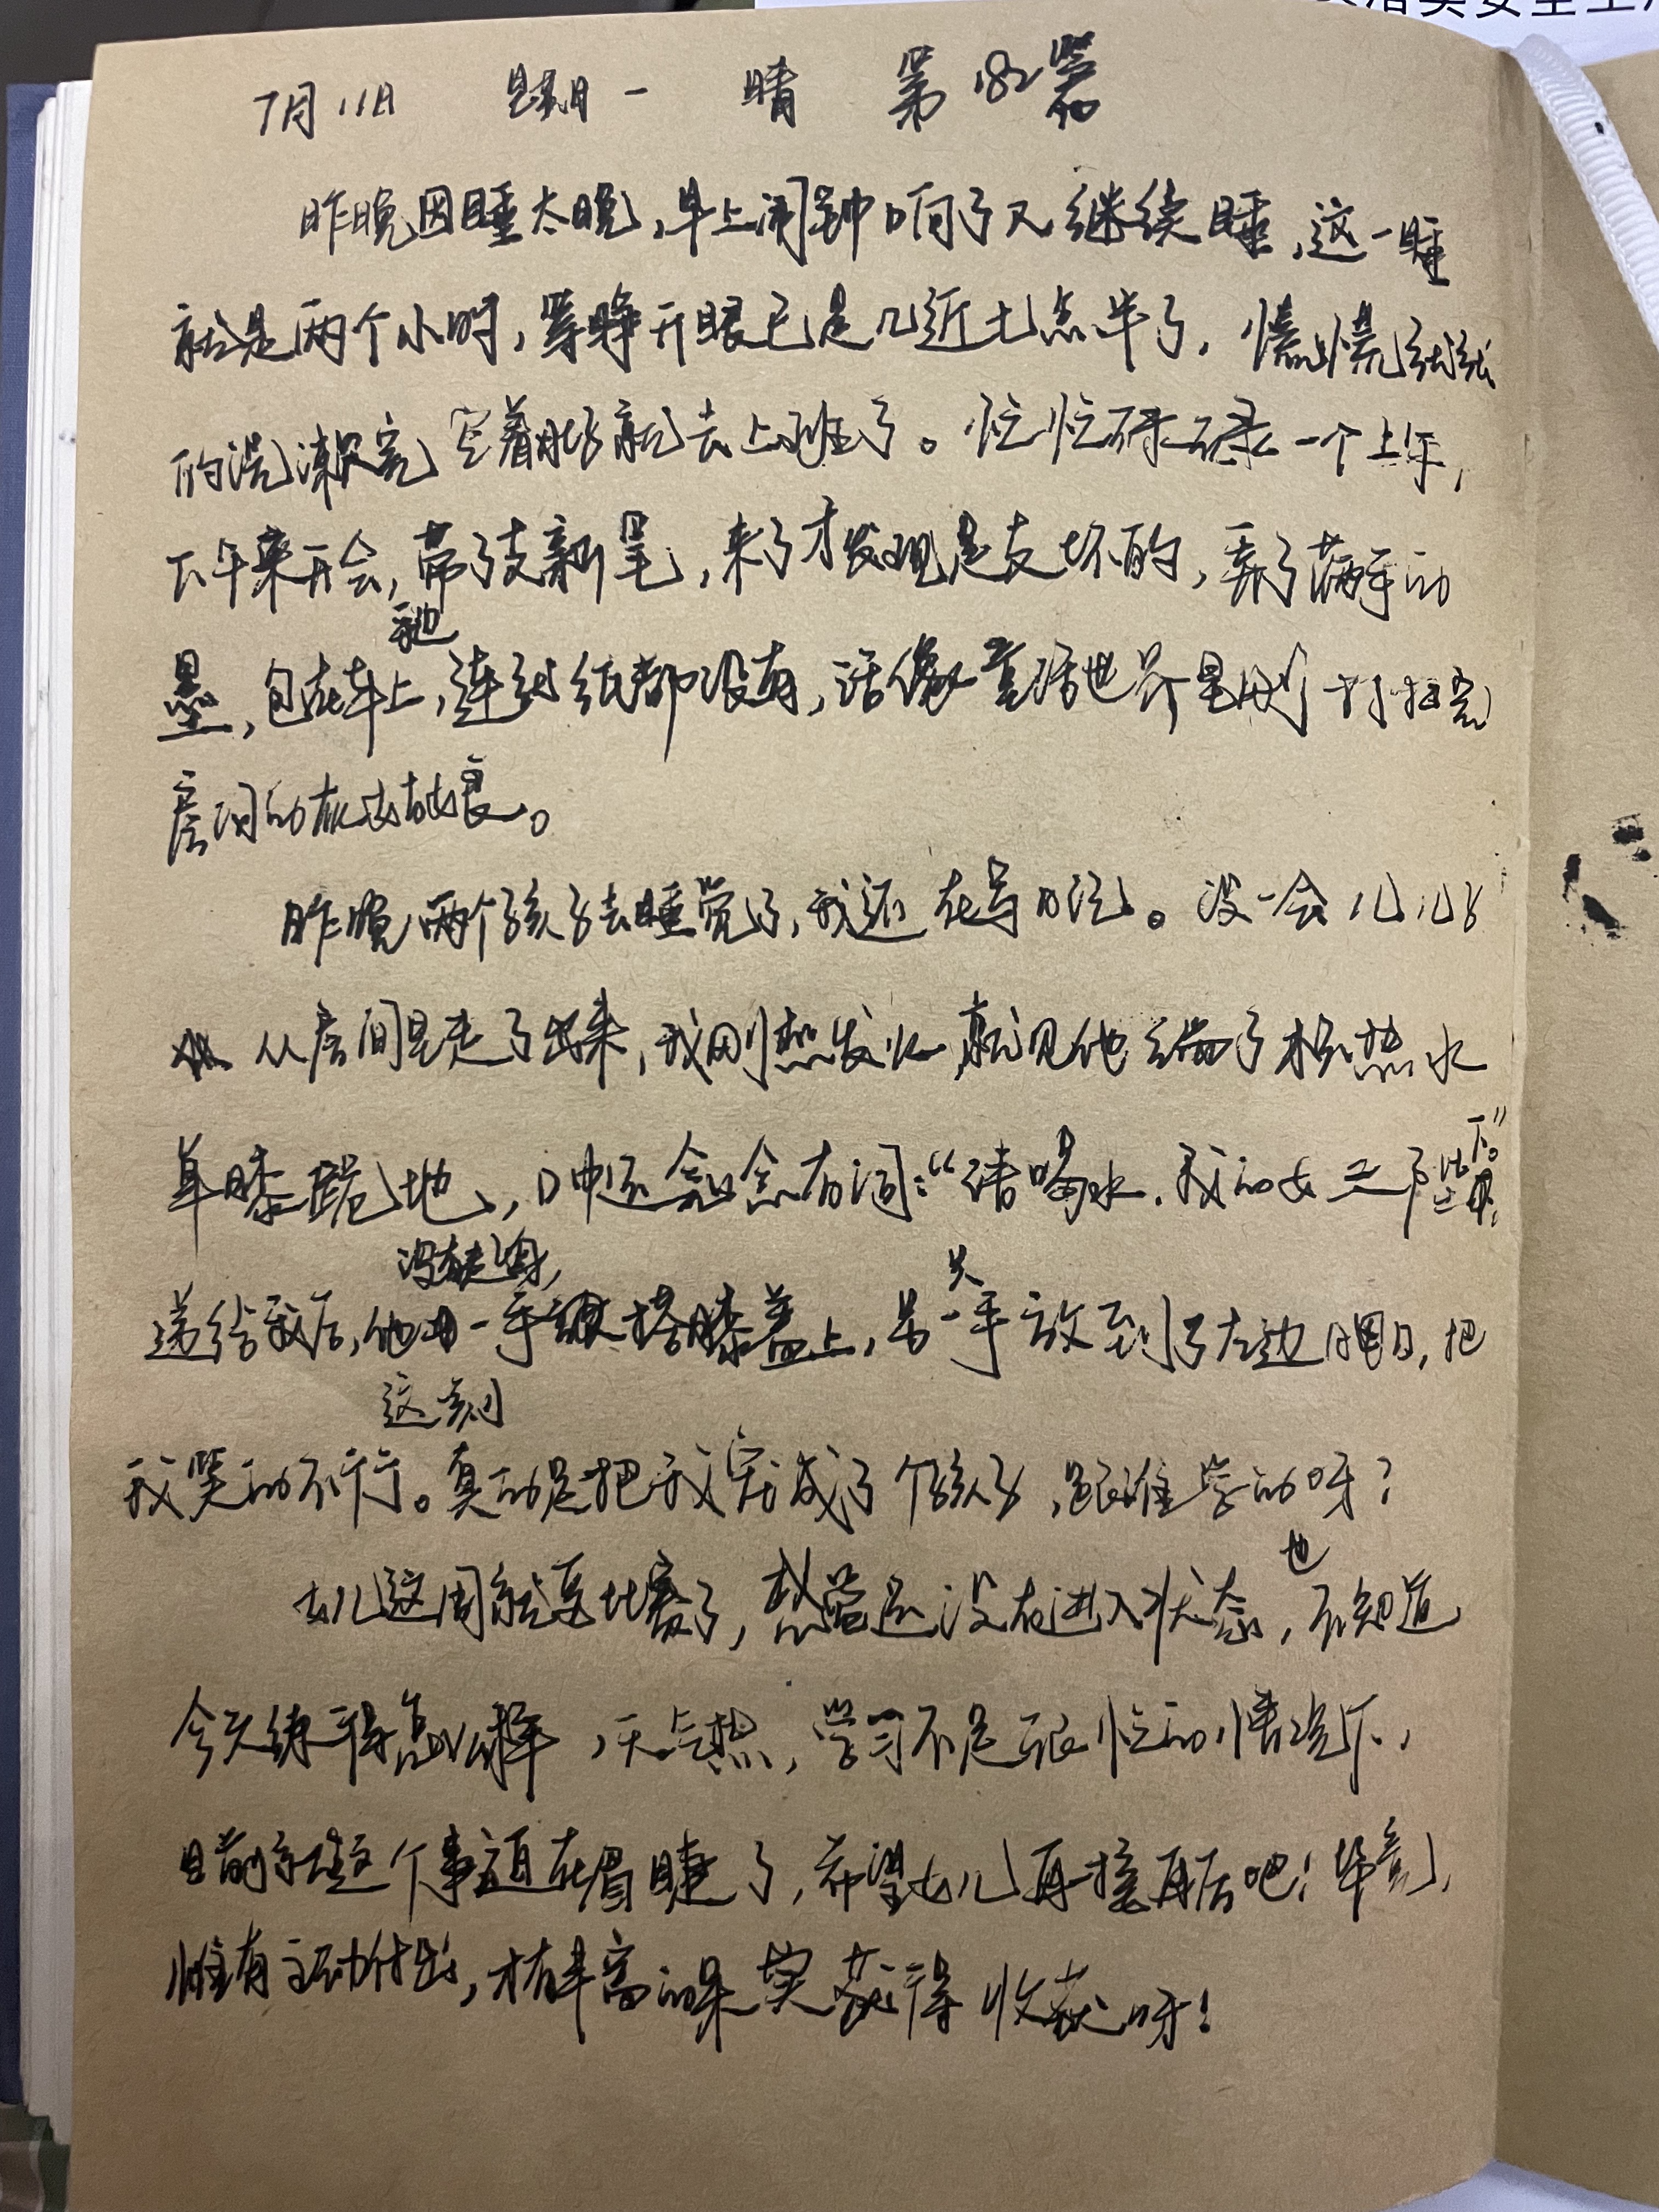 7月11日 星期一 晴 第182篇
昨晚因睡太晚,早上闹钟响了又继续睡,这一睡
就是两个小时,等睁开眼已是几近七点半了,慌慌张张
的洗漱完空着肚子就去上班了。忙忙碌碌一个上午,
下午来开会,带了支新笔,来了才发现是支坏的,弄了满手的
墨,包在车上,连张纸都没有,活像童话世界里刚打扫完
房间的灰姑娘。
昨晚两个孩子去睡觉了,我还在写日记。没一会儿儿子
从房间里走了出来,我刚想发火就见他端了杯热水
单膝跪地,口中还念念有词:“请喝水,我的女王陛下。”
递给我后,他没有起身,一手搭膝盖上,另一只手放到了左边胸口,把
我笑的不行。这刻真的是把我宠成了个孩子,跟谁学的呀?
女儿这周就要比赛了,感觉还没有进入状态,也不知道
今天练得怎么样,天气热,学习不是很忙的情况下,
目前就这个事迫在眉睫了,希望女儿再接再厉吧!毕竟,
唯有主动付出,才有丰富的果实获得收获呀!